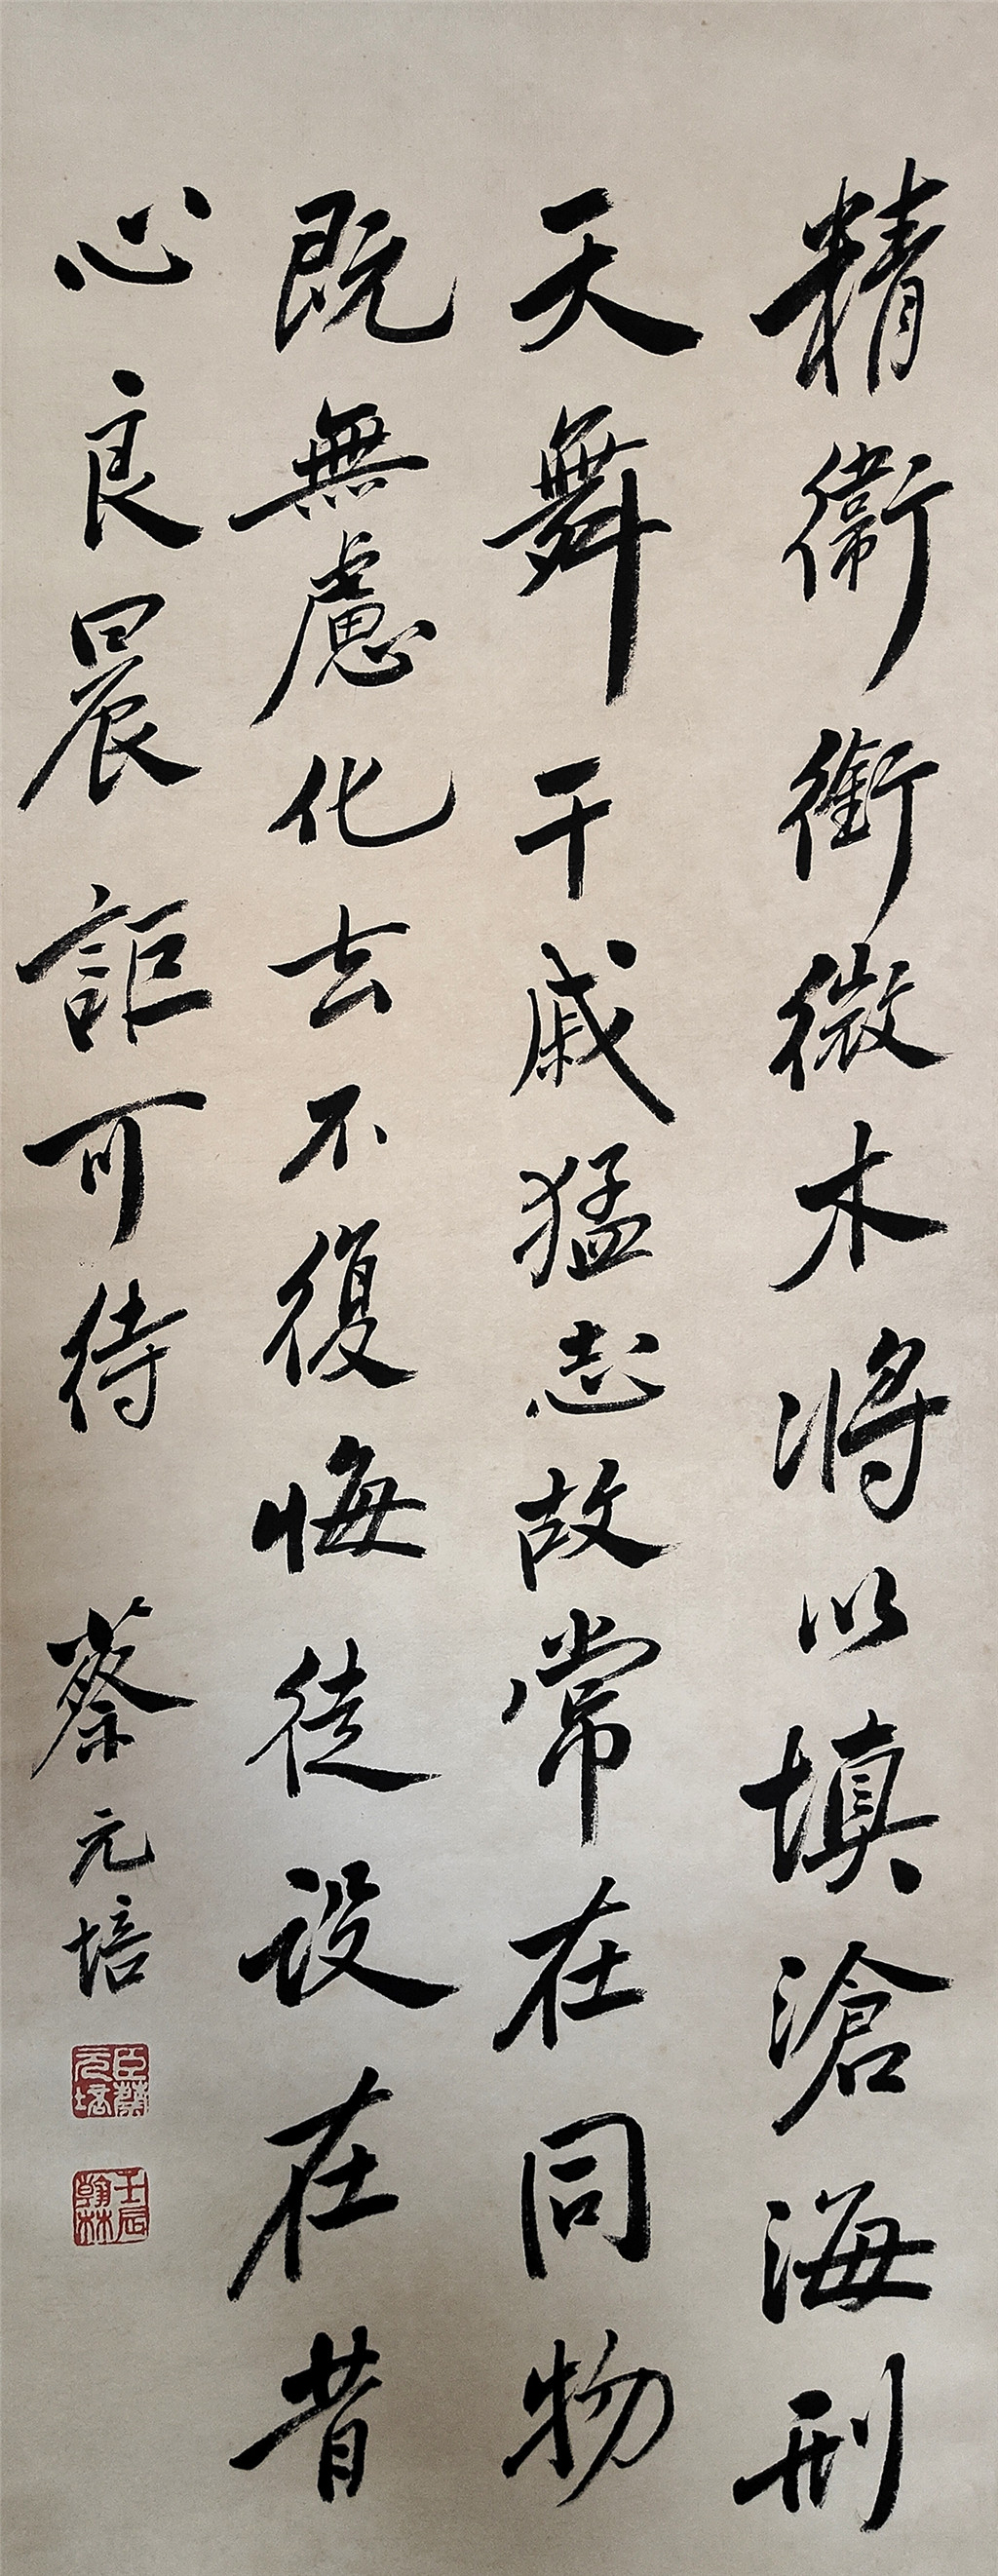 精衞銜微木將以填滄海刑
天舞干戚猛志故常在同物
既無慮化去不復悔徒設在昔
心良晨詎可待
蔡元培
臣蔡元培
壬辰翰林